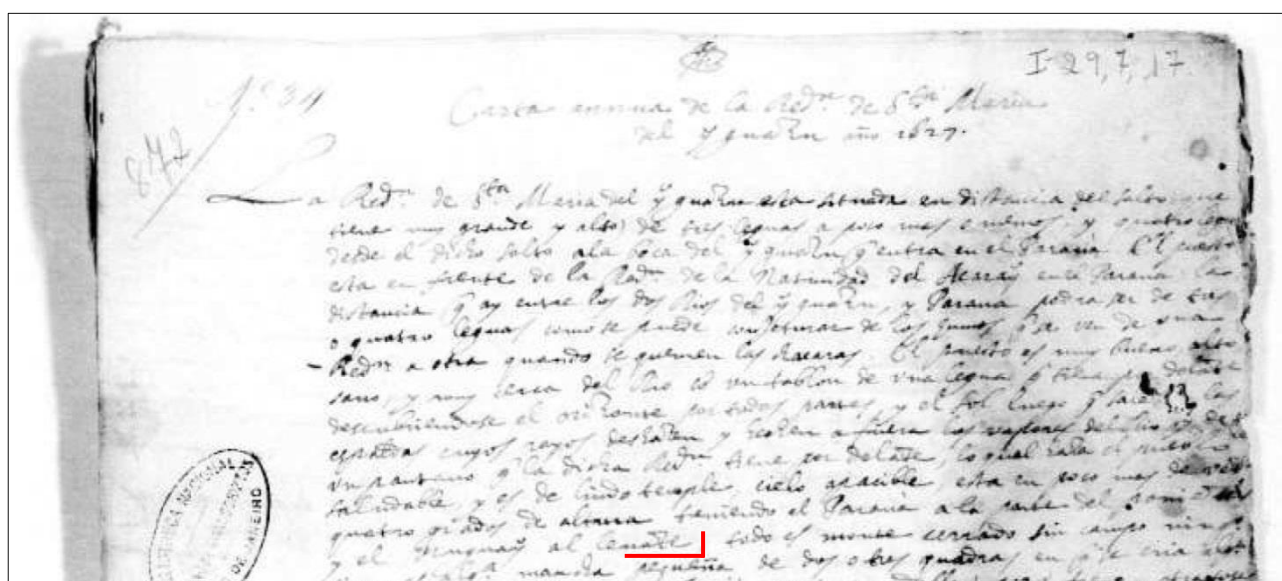 I-29,7,17
Nº 34
872
Carta annua de la Redn. de Sta Maria
del yguazu año 1627.
La Redn. de Sta. Maria del yguazu esta situada en distancia del salto (que
tiene muy grande y alto) de tres leguas a poco mas o menos, y quatro
desde el dicho salto a la boca del yguazu q entra en el Parana. El puesto
esta en frente de la Redn. de la Natividad del Acaray en el Parana. la
distancia q ay entre los dos Rios del yguazu, y Parana podra ser de tres
o quatro leguas como se puede conjeturar de los humos q se ven de una
Redn. a otra quando se queman las chacaras. El puesto es muy bueno, alto
sano, y muy cerca del Rio co un tablon de una legua q tiene por delate
descubriendose el orizonte por todas partes, y el sol luego q sale
espaldas cuyos rayos deshazen y hechan a fuera los vapores del Rio y de
un pantano q la dicha Redn. tiene por delate, lo qual haze el puesto
saludable, y es de lindo temple, cielo apacible, esta en poco mas de
quatro grados de altura teniendo el Parana a la parte del poniete
y el Uruguay al levate todo es monte cerrado sin campo
mancha pequeña de dos o tres quadras en q se cria
BIBLIOTHECA NACIONAL
DE JANEIRO